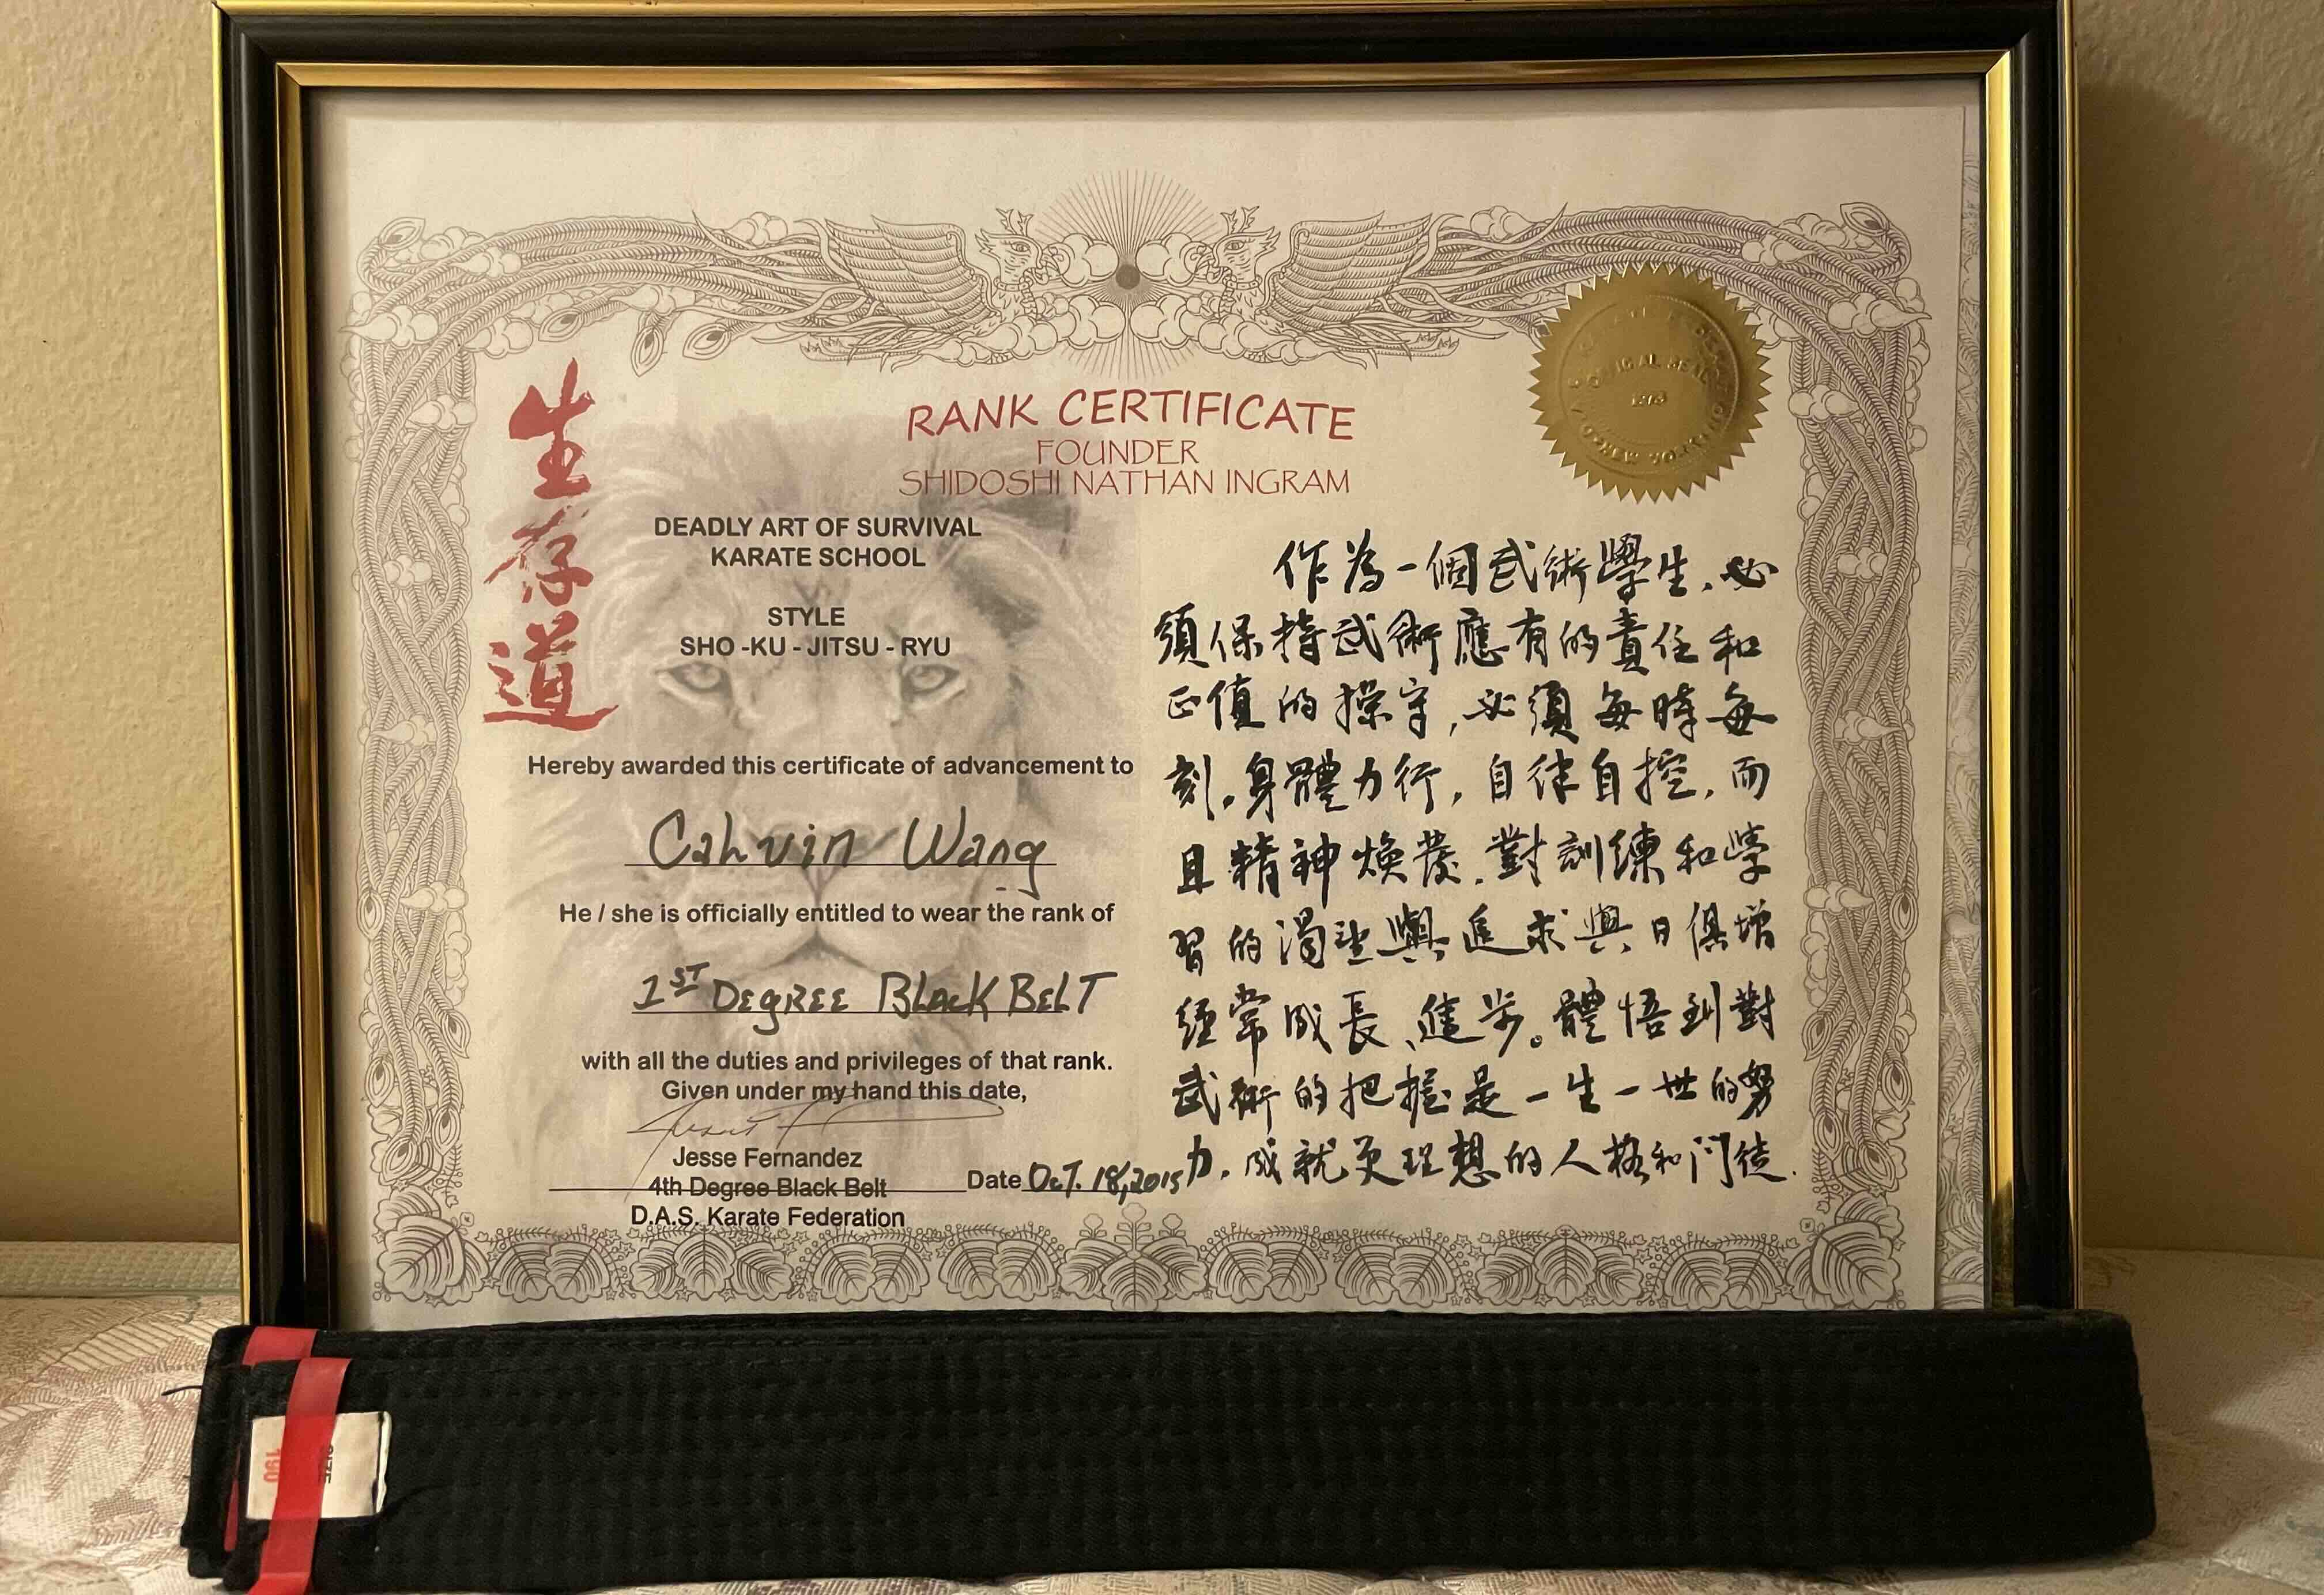 生存道
RANK CERTIFICATE
FOUNDER
SHIDOSHI NATHAN INGRAM
DEADLY ART OF SURVIVAL
KARATE SCHOOL
STYLE
SHO -KU - JITSU - RYU
Hereby awarded this certificate of advancement to
Cahvin Wang
He / she is officially entitled to wear the rank of
1ST DEgREE BLACK BELT
with all the duties and privileges of that rank.
Given under my hand this date,
Jesse Fernandez
4th Degree Black Belt
D.A.S. Karate Federation
Date OcT. 18, 2015
OFFICIAL SEAL
NEW YORK
作為一個武術學生,必
須保持武術應有的責任和
正值的操守,必須每時每
刻,身體力行,自律自控,而
且精神煥發,對訓練和學
習的渴望與追求與日俱增
經常成長、進步。體悟到對
武術的把握是一生一世的努
力,成就更理想的人格和門徒.
SIZE
190